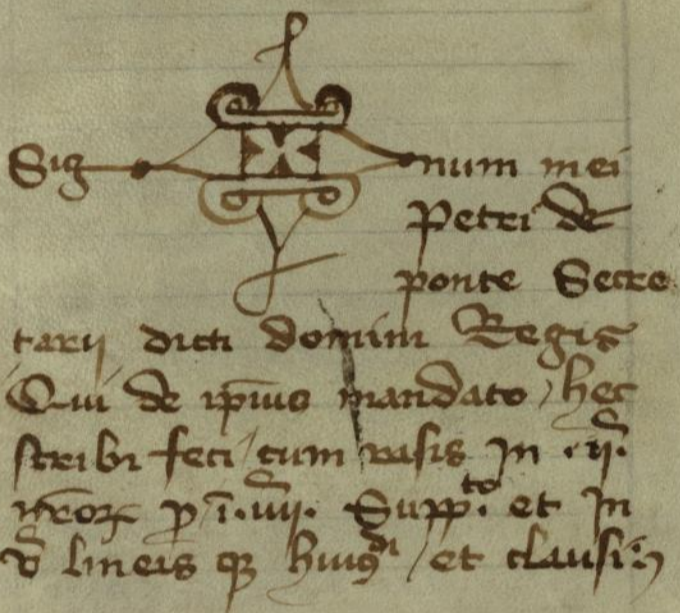 Sig num mei
Petri de
ponte Secre
tarij dicti domini Regis
Qui de ip̄ius mandato / hec
scribi feci / cum rasis in .ij.
Supp.to et In
lineis / et clausi: